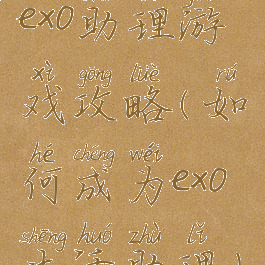 exo助理游
xì gōng lüè rú
戏攻略(如
hé chéng wéi
何成为exo
shēng huó zhù lǐ
生活助理)